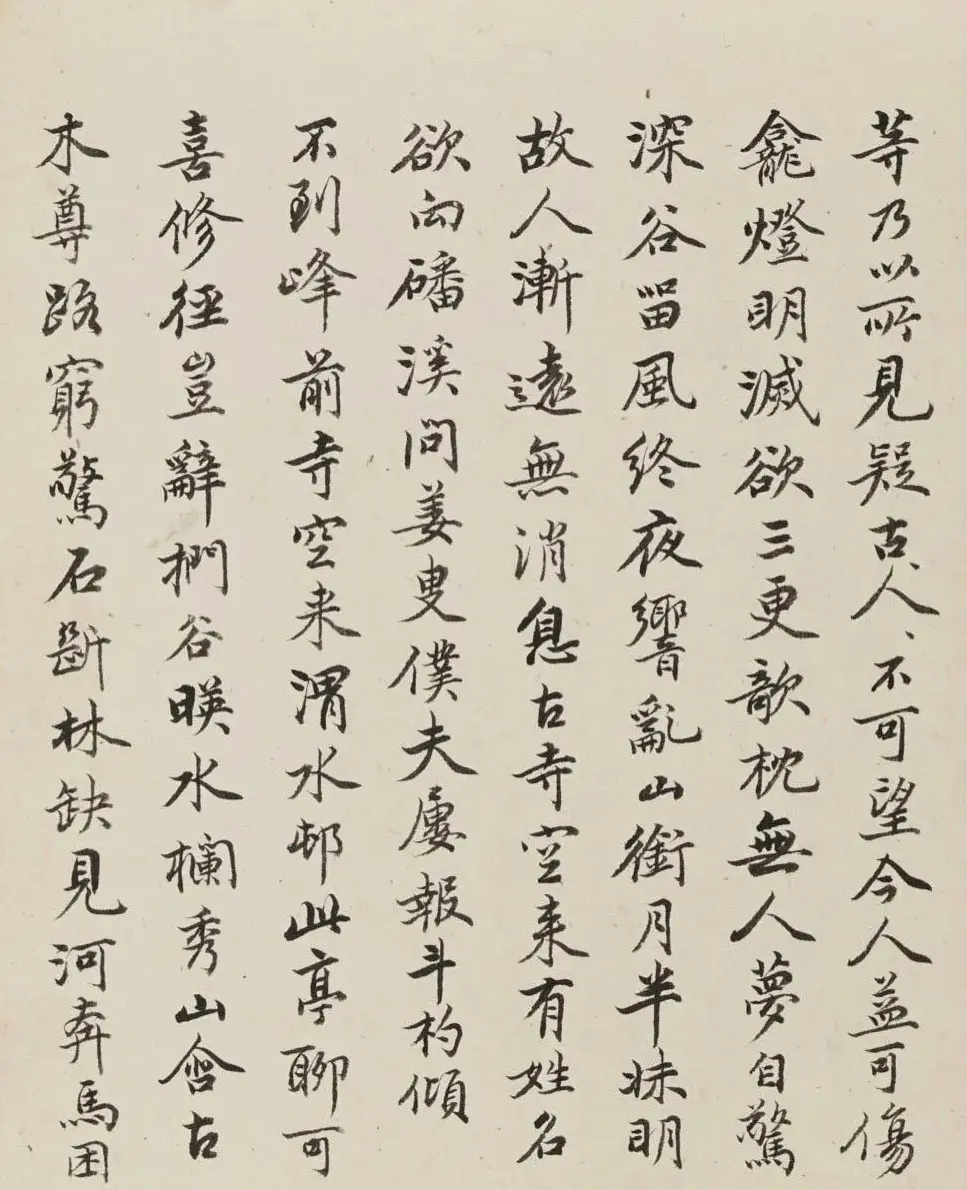 等乃以所見疑古人、不可望今人益可傷
龕燈明滅欲三更欹枕無人夢自驚
深谷留風終夜響亂山銜月半牀明
故人漸遠無消息古寺空來有姓名
欲向磻溪問姜叟僕夫屢報斗杓傾
不到峰前寺空来渭水邨此亭聊可
喜修徑豈辭捫谷暎水欄秀山含古
木尊路窮驚石斷林缺見河奔馬困